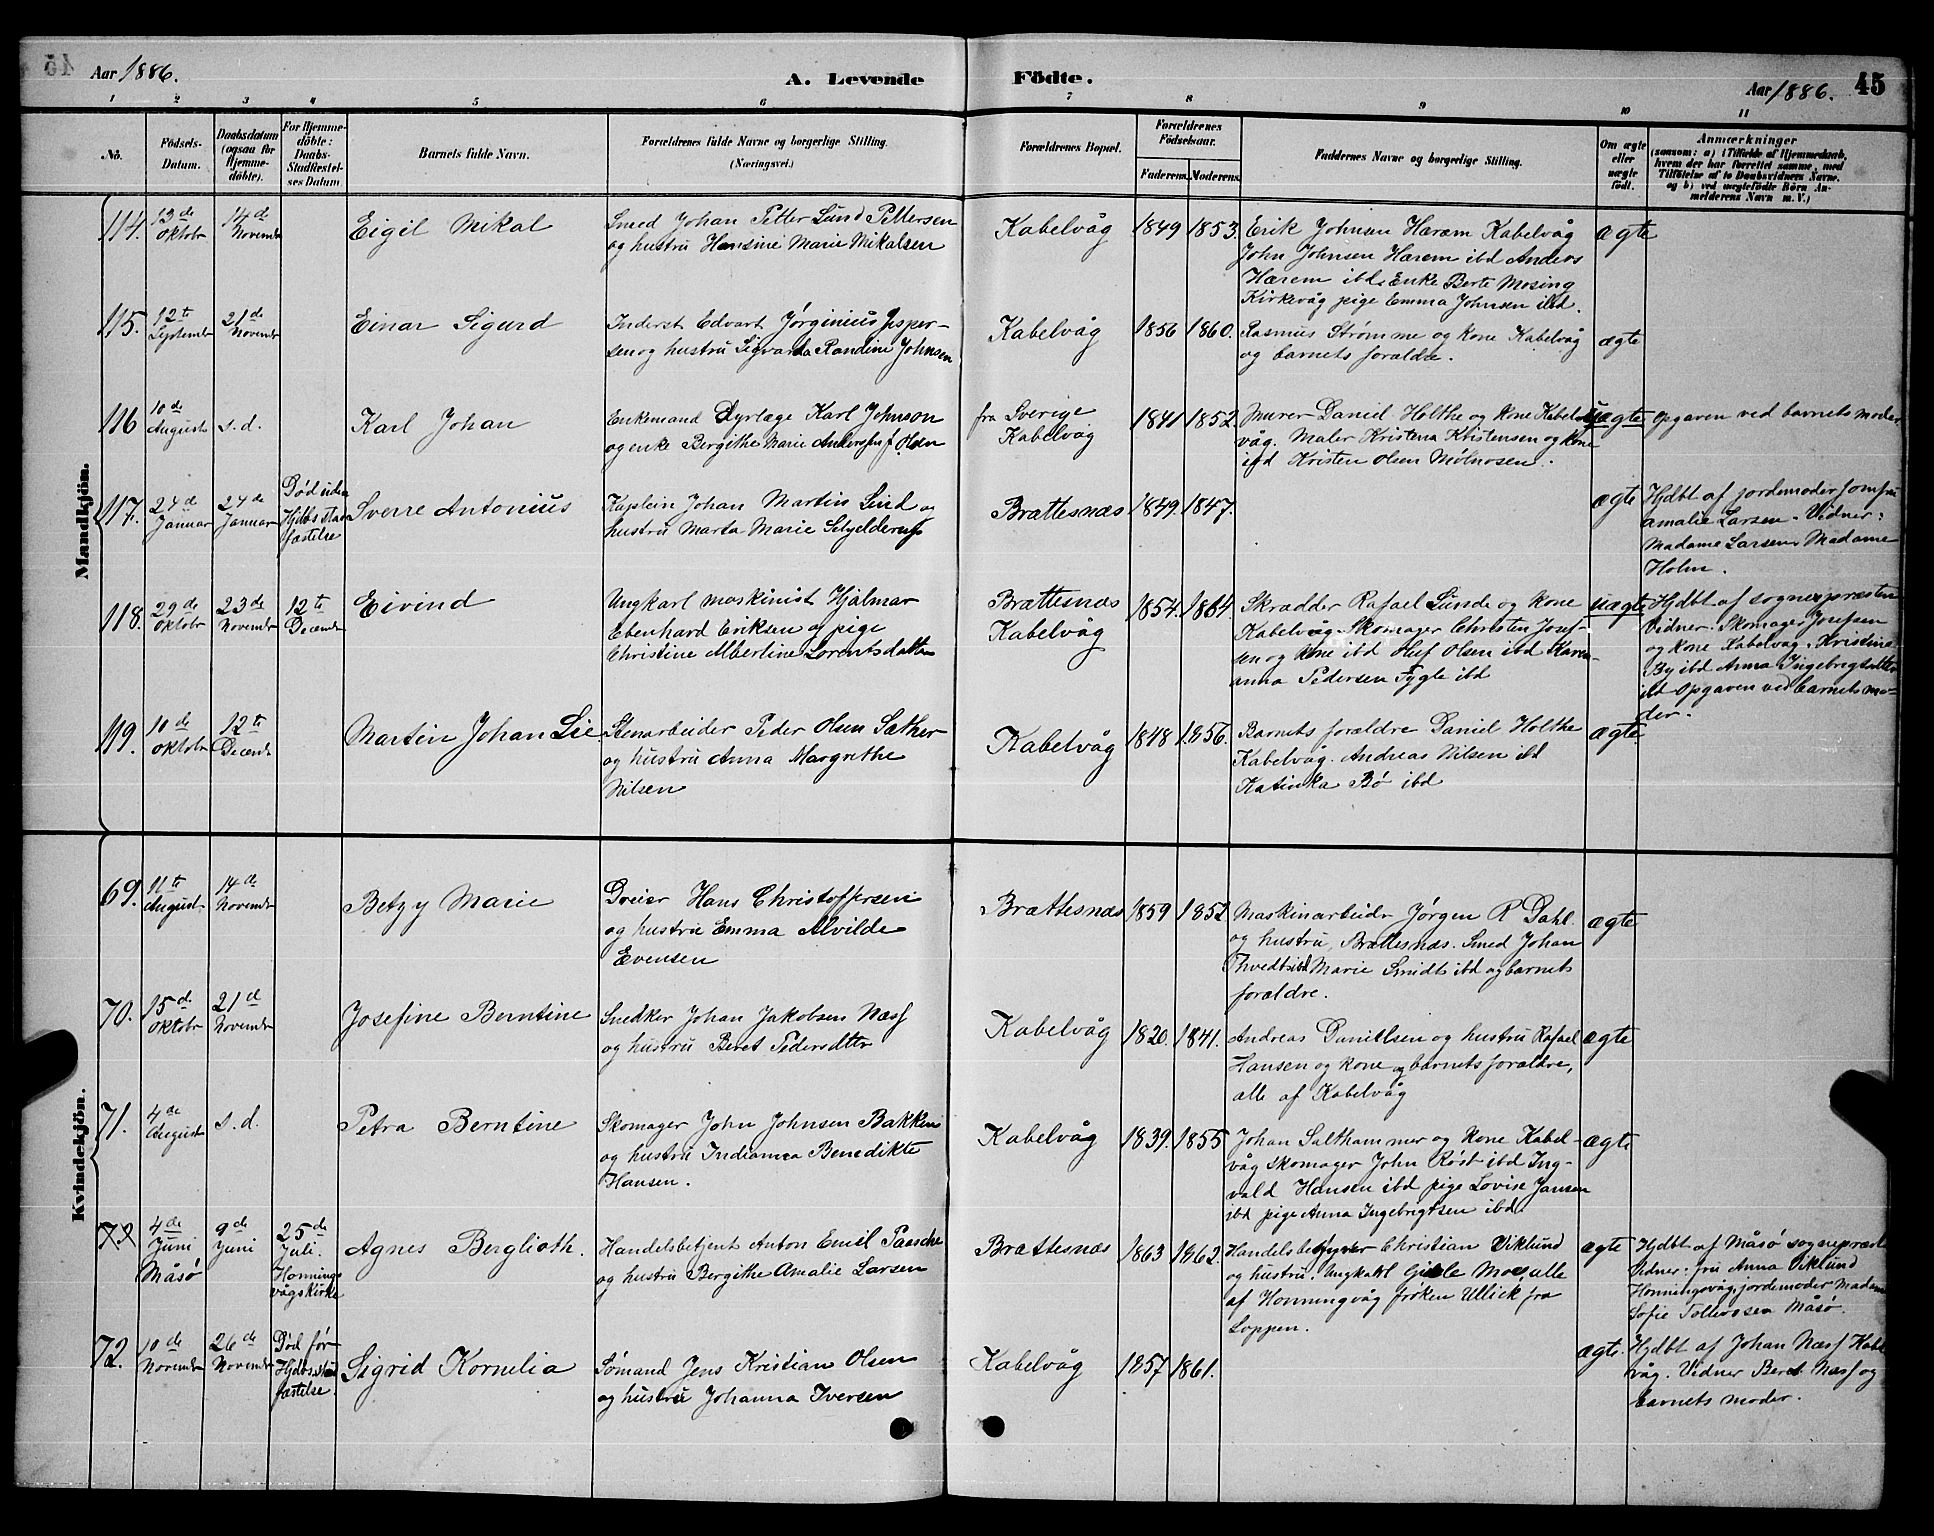 Aar 1886.
A. Levende Födte.
Aar 1886. 45
1 2 3 4 5 6 7 8 9 10 11
No.
Födsels-
Datum.
Daabsdatum
(ogsaa for
Hjemme-
döbte).
For Hjemme-
döbte:
Daabs-
Stadfæstel-
ses Datum
Barnets fulde Navn.
Forældrenes fulde Navne og borgerlige Stilling.
(Næringsvei.)
Forældrenes Bopæl.
Forældrenes
Födselsaar.
Faderens. Moderens.
Faddernes Navne og borgerlige Stilling.
Om ægte
eller
uægte
födt.
Anmærkninger
(saasom: a) i Tilfælde af Hjemmedaab,
hvem der har forrettet samme, med
Tilföielse af to Daabsvidners Navne,
og b) ved uægtefödte Börn An-
melderens Navn m. V.)
Mandkjön.
114.
13de
Oktobr
14d
Novembr
Eigil Mikal
Smed Johan Petter Lund Pettersen
og hustru Hansine Marie Mikalsen
Kabelvåg
1849 1853.
Erik Johnsen Harem Kabelvåg
John Johnsen Harem ibd Andeas
Harem ibd. Enke Berte Mosing
Kirkevåg pige Emma Johnsen ibd.
ægte
115.
12te
Septembr
21de
Novembr
Einar Sigurd
Inderst Edvart Jørginius Jesper-
sen og hustru Sigvarda Randine Johnsen
Kabelvåg
1856 1860.
Rasmus Strømme og kone Kabelvåg
og barnets forældre.
ægte
116
10de
August
s.d.
Karl Johan
Enkemand Dyrlæge Karl Johnson
og enke Bergithe Marie Anders f. Olsen
fra Sverige
Kabelvåg
1841 1852.
Murer Daniel Holthe og kone Kabel-
våg. Maler Kristena Kristensen og kone
ibd Kristen Olsen Mølnosen.
uægte
Opgaven ved barnets moder
117.
24d
Januar
24de
Januar
Død uden
Hjdbs stad
fæstelse
Sverre Antonius
Kaptein Johan Martin Lind og
hustru Marta Marie Schjelderup
Brættesnæs
1849. 1847.
ægte
Hjdbt af jordemoder Jomfru
Amalie Larsen. Vidner:
Madame Larsen, Madame
Holm.
118.
29de
Oktobr
23de
Novembr
12te
Decembr
Eivind
Ungkarl maskinist Hjalmar
Ebenhard Eriksen og pige
Christine Albertine Lorentsdatter
Brættesnæs
Kabelvåg
1854. 1864.
Skrædder Rafael Lunde og kone
Kabelvåg. Skomager Christen Josef-
sen og kone ibd Oluf Olsen ibd Karen-
anna Pedersen Fygle ibd
uægte
Hjdbt af sognepræsten
Vidner: Skomager Josefsen
og kone Kabelvåg. Kristine
By ibd Anna Ingebregtsdtter
ibd Opgaven ved barnets mo-
der.
119.
10de
Oktobr
12te
Decembr
Martin Johan Lie
Stenarbeider Peder Olsen Sæther
og hustru Anna Margrethe
Nilsen
Kabelvåg
1848 1856.
Barnets forældre Daniel Holthe
Kabelvåg. Andreas Nilsen ibd
Katinka Bø ibd
ægte
Kvindekjön.
69.
11te
August.
14de
Novembr
Betzy Marie
Dreier Hans Christoffersen
og hustru Emma Alvilde
Evensen
Brættesnæs
1859 1852
Maskinarbeidr Jørgen R Dahl.
og hustru, Brættesnæs. Smed Johan
Thvedt ibd Marie Smidt ibd og barnets
forældre.
ægte
70.
15de
Oktobr
21d
Novembr
Josefine Berntine
Snedker Johan Jakobsen Næss
og hustru Beret Pedersdtter
Kabelvåg
1820. 1841.
Andreas Daniellsen og hustru Rafael
Hansen og kone og barnets forældre,
alle af Kabelvåg
ægte
71.
4de
August
s.d.
Petra Berntine
Skomager John Johnsen Bakken
og hustru Indianna Benedikte
Hansen.
Kabelvåg
1839. 1855
Johan Salthammer og kone Kabel-
våg skomager John Røst ibd Ing-
vald Hansen ibd pige Lovise Jansen
ibd pige Anna Ingebrigtsen ibd.
ægte
72
4de
Juni
Måsø
9de
Juni
25de
Juli.
Honnings
vågs kirke
Agnes Berglioth.
Handelsbetjent Anton Emil Paasche
og hustru Bergithe Amalie Larsen
Brættesnæs
1863 1862.
Handelsbestyrer Christian Viklund
og hustru. Ungkarl Gisle Moe, alle
af Honningvåg frøken Ullick fra
Loppen.
ægte
Hjdbt af Måsø sognepræst
Vidner: fru Anna Viklund
Honningsvåg, jordemoder Madam
Sofie Tollevsen Måsø.
72.
10de
Novembr
26de
Novembr
Død før
Hjdbs stad
fæstelse
Sigrid Kornelia
Sømand Jens Kristian Olsen
og hustru Johanna Iversen
Kabelvåg
1857 1861.
ægte.
Hjdbt af Johan Næss Kabel
våg. Vidner Beret Næss og
barnets moder.